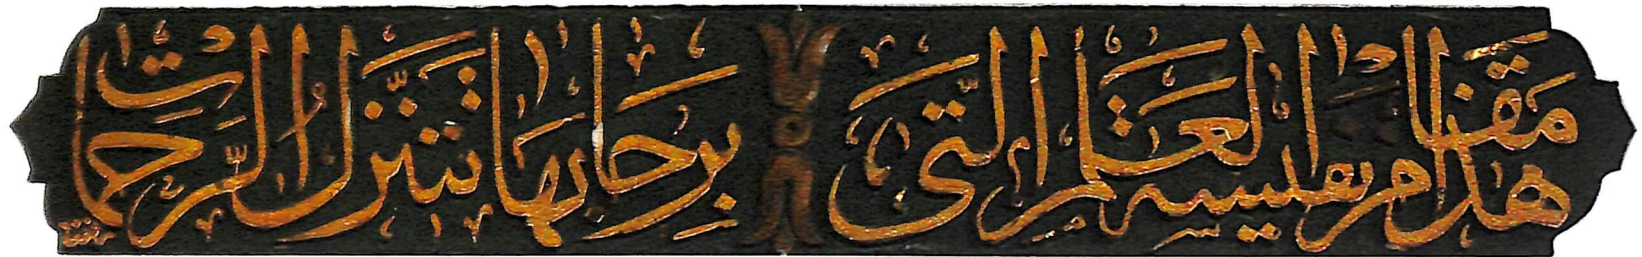 هذا مقام نفيسة العلم التى برحابها تتنزل الرحمات